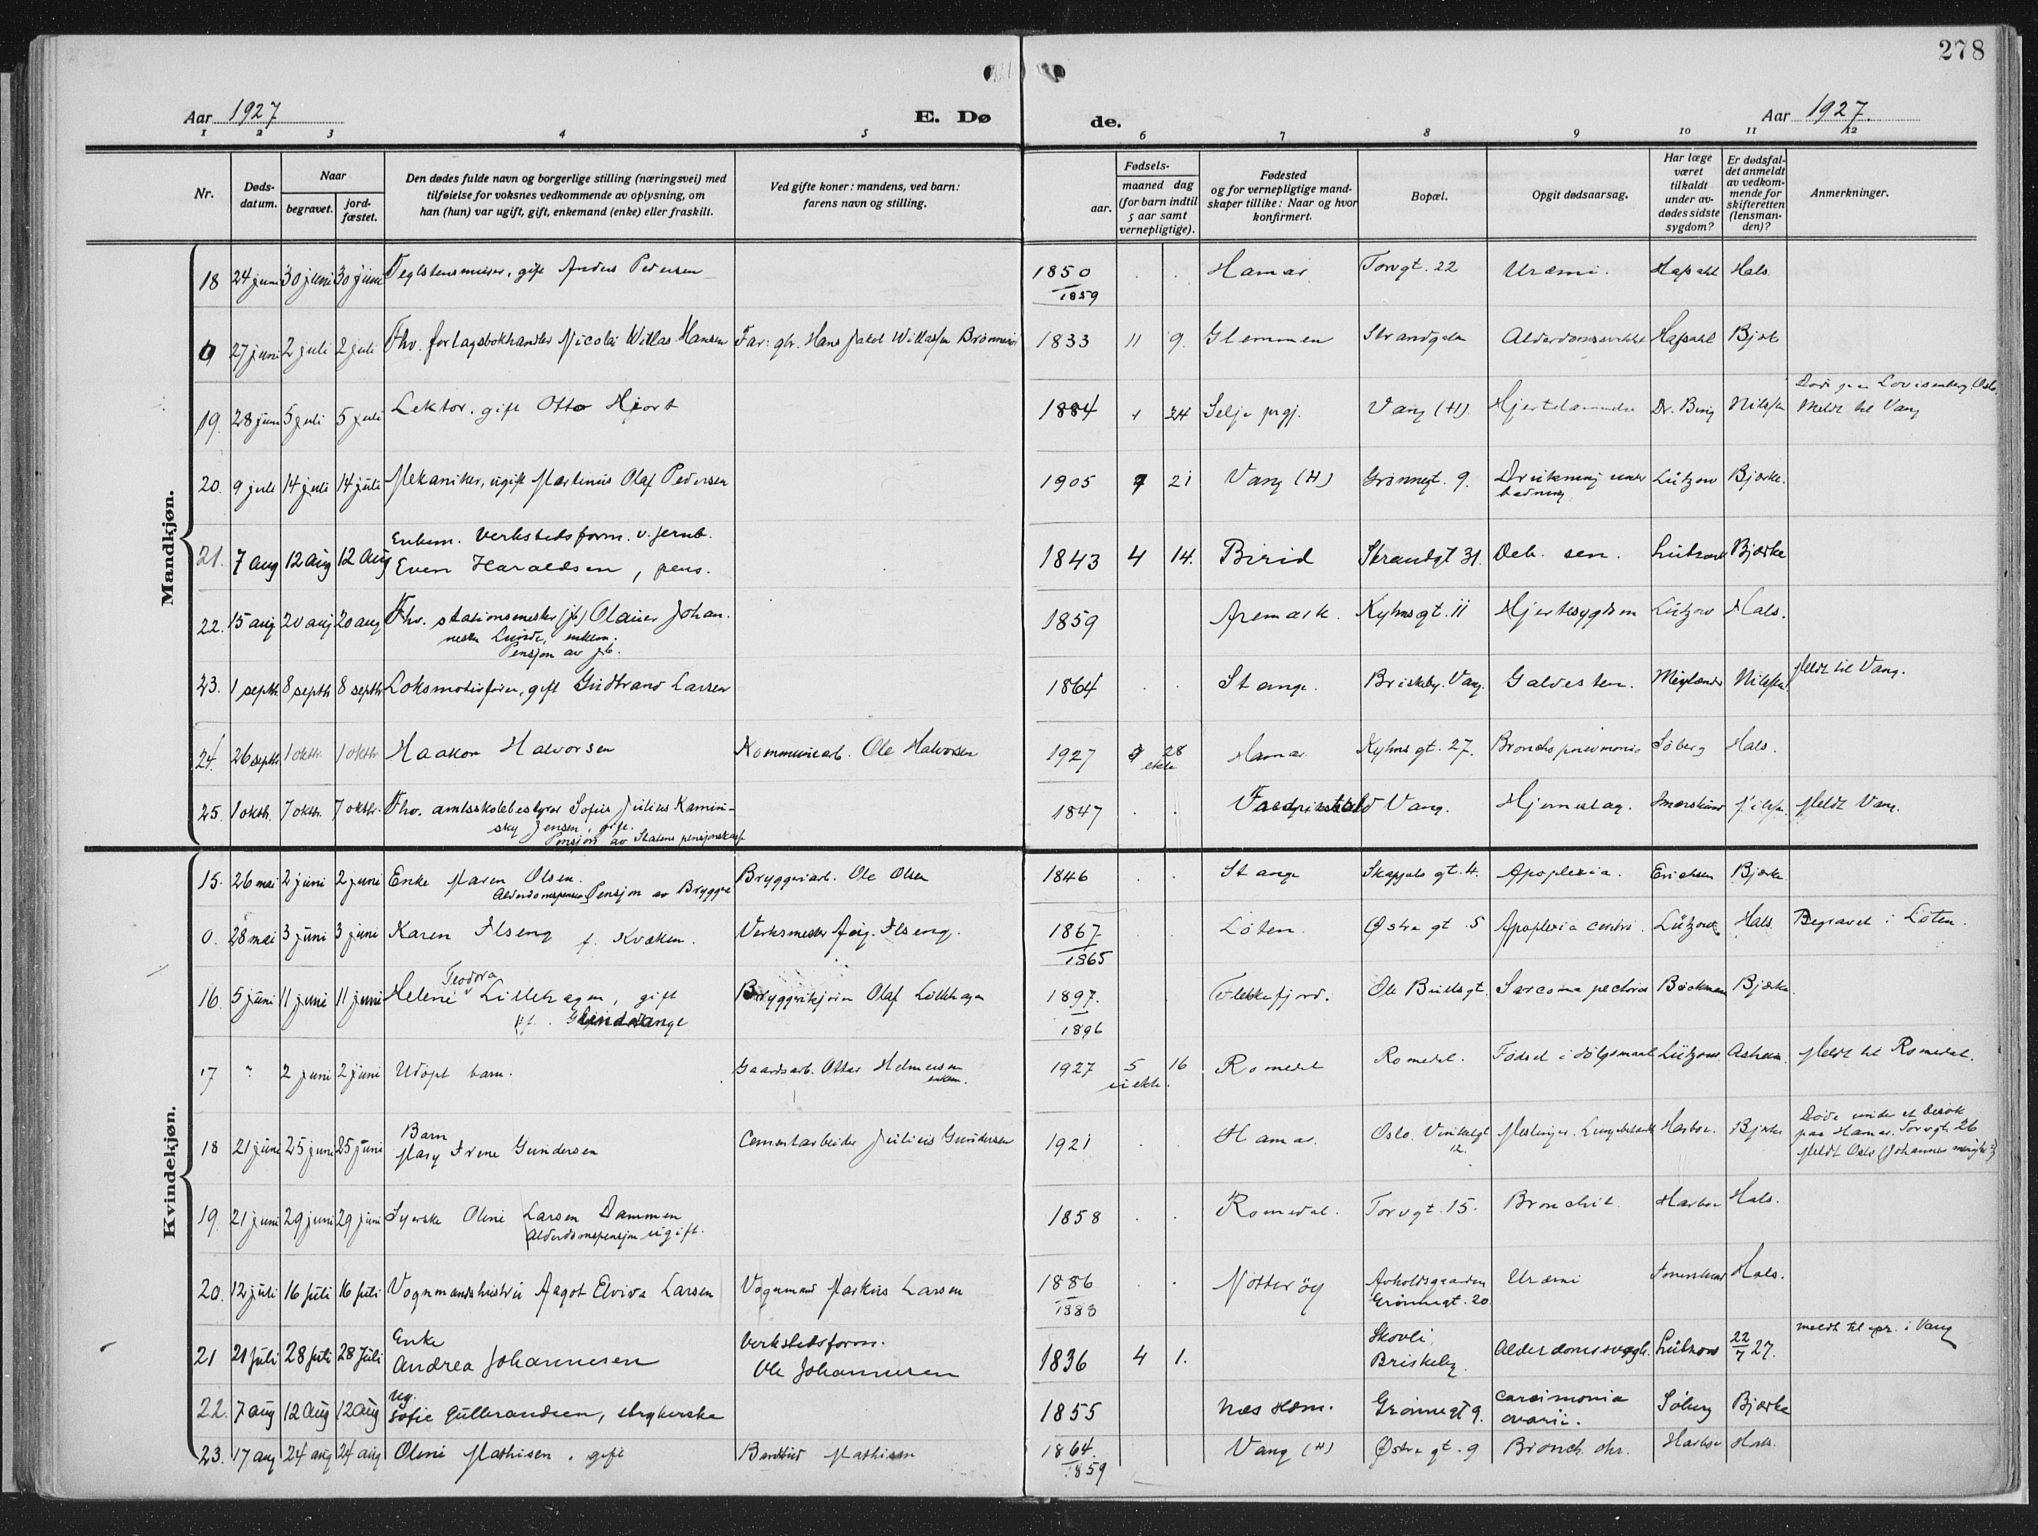 278
Aar 1927
E. Dø
de.
Aar 1927.
1 2 3 4 5 6 7 8 9 10 11 12
Nr.
Døds-
datum.
Naar
begravet.
jord-
fæstet.
Den dødes fulde navn og borgerlige stilling (næringsvei) med
tilføielse for voksnes vedkommende av oplysning, om
han (hun) var ugift, gift, enkemand (enke) eller fraskilt.
Ved gifte koner: mandens, ved barn:
farens navn og stilling.
Fødsels-
aar.
maaned dag
(for barn indtil
5 aar samt
vernepligtige).
Fødested
og for vernepligtige mand-
skaper tillike: Naar og hvor
konfirmert.
Bopæl.
Opgit dødsaarsag.
Har læge
været
tilkaldt
under av-
dødes sidste
sygdom?
Er dødsfal-
det anmeldt
av vedkom-
mende for
skifteretten
(lensman-
den)?
Anmerkninger.
Mandkjøn.
18 24 juni 30 juni 30 juni Teglstensmurer, gift Anders Pedersen 1850 . . Hamar Torvgt. 22 Uræmi. Hafsahl Hals.
1859
0 27 juni 2 juli 2 juli Fhv. forlagsbokhandler Nicolai Willas Hansen Far: gbr. Hans Jakob Willassen 1833 11 9. Glemmen Strandgaten Hafsahl Bjørk
Døde paa Lovisenberg, Oslo.
19. 28 juni 5 juli 5 juli Lektor, gift Otto Hjort 1884 24 Selje prgj. Vang (H). Hjertelammelse Dr. Bing Nilssen Meldt til Vang
20. 9 juli 14 juli 14 juli Mekaniker, ugift Martinius Olaf Pedersen 1905 7 21 Vang (H) Grønnegt. 9. Drukning under Lützow Bjørke.
badning
Enkem. Verkstedsform. v. jernb.
21. 7 aug 12 aug 12 aug Even Haraldsen, pens. 1843 4 14. Birid Strandgt 31. Deb. sen. Lützow Bjørke
22. 15 aug 20 aug 20 aug Fhv. stationsmester (jb) Olaus Johan- 1859 Aremark. Kyhnsgt. 11 Hjertesygdom Lützow Hals.
nesen Lunde, enkem.
Pensjon av jb.
23. 1 septb. 8 septb 8 septb Lokomotivfører, gift Gudbrand Larsen 1864 . . Stange. Briskeby, Vang. Galdesten. Meylænder Nilssen Meldt til Vang.
24. 26 septb 1 oktb. 1 oktb. Haakon Halvorsen Kommunearb. Ole Halvorsen 1927 9 28 Hamar Kyhnsgt. 27. Bronchopneumonie Søberg Hals.
ekte
25. 1 oktb. 7 oktb. 7 oktb. Fhv. amtsskolebestyrer Sofus Julius Kamin- 1847 . . Vang. Hjerneslag. Meldt Vang.
sky Jensen, gift.
Pensjon av Statens pensjonskasse
Kvindekjøn.
15. 26 mai 2 juni 2 juni Enke Maren Olsen. Bryggeriarb. Ole Olsen 1846 . . Stange Skappels gt. 4. Apoplexia. Erichsen Bjørke
Alderdomspensjon Pensjon av Bryggeri
0. 28 mai 3 juni 3 juni Karen Ilseng f. Kvæken. Verksmester Aug. Ilseng. 1867 Løten. Østre gt. 5 Apoplexia cerebri. Lützow Hals. Begravet i Løten.
1865
Teodora
16. 5 juni 11 juni 11 juni Helene Lillehagen, gift Bryggerikjører Olaf Lillehagen 1897. Flekkefjord. Ole Bullsgt. Sarcoma pectoris Bøckman Bjørke
f. Grindvange 1896
17 " 2 juni 2 juni Udøpt barn. Gaardsarb. Ottar Helmersen 1927 5 16 Romedal Romedal. Fødsel i dølgsmaal Lützow Asheim. Meldt til Romedal.
enkem. uekte.
Barn
18 21 juni 25 juni 25 juni Mary Irene Gundersen Cementarbeider Julius Gundersen 1921 Hamar. Oslo. Harboe. Bjørke
12.
Døde under et besøk
paa Hamar, Torvgt. 26
Meldt Oslo (Johannes menighet)
19. 21 juni 29 juni 29 juni Syerske Oline Larsen Dammen 1858 . . Romedal. Torvgt. 15. Bronchit. Harboe Hals.
Alderdomspensjon ugift.
20. 12 juli 16 juli 16 juli Vognmandshustru Aagot Elvira Larsen Vognmand Markus Larsen 1886 . Nøtterøy Avholdsgaarden Uræmi Hals.
1883 Grønnegt. 20.
Enke Verkstedsform. Skovli 22
21 21 juli 28 juli 28 juli Andrea Johannesen Ole Johannesen 1836 4 1. Briskeby. Alderdomssvagh. Lützow 7 27. meldt til spr. i Vang
ug.
22. 7 aug 12 aug 12 aug Sofie Gulbrandsen, strykerske 1855 Næs Hdm. Grønnegt 9. carcinonia Søberg Bjørke
ovarii.
23. 17 aug 24 aug 24 aug Oline Mathisen, gift Mathisen 1864. Vang (H) Østre gt. 9 Bronch. chr. Harboe Hals.
1859